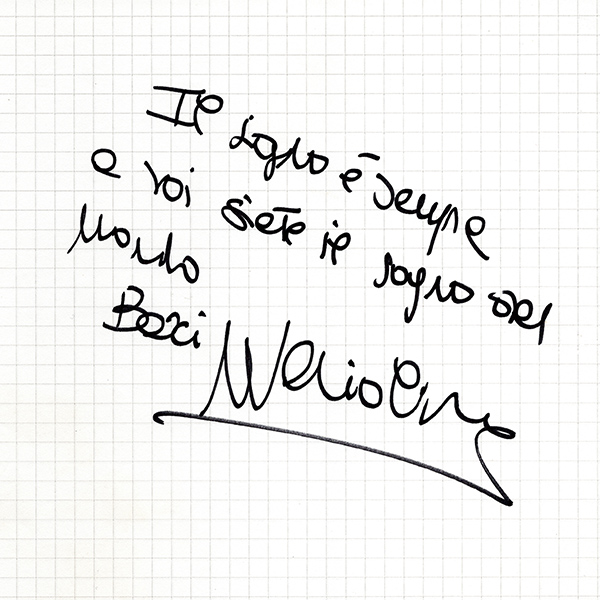 Il sogno è sempre
e voi siete il sogno del
Mondo
Baci